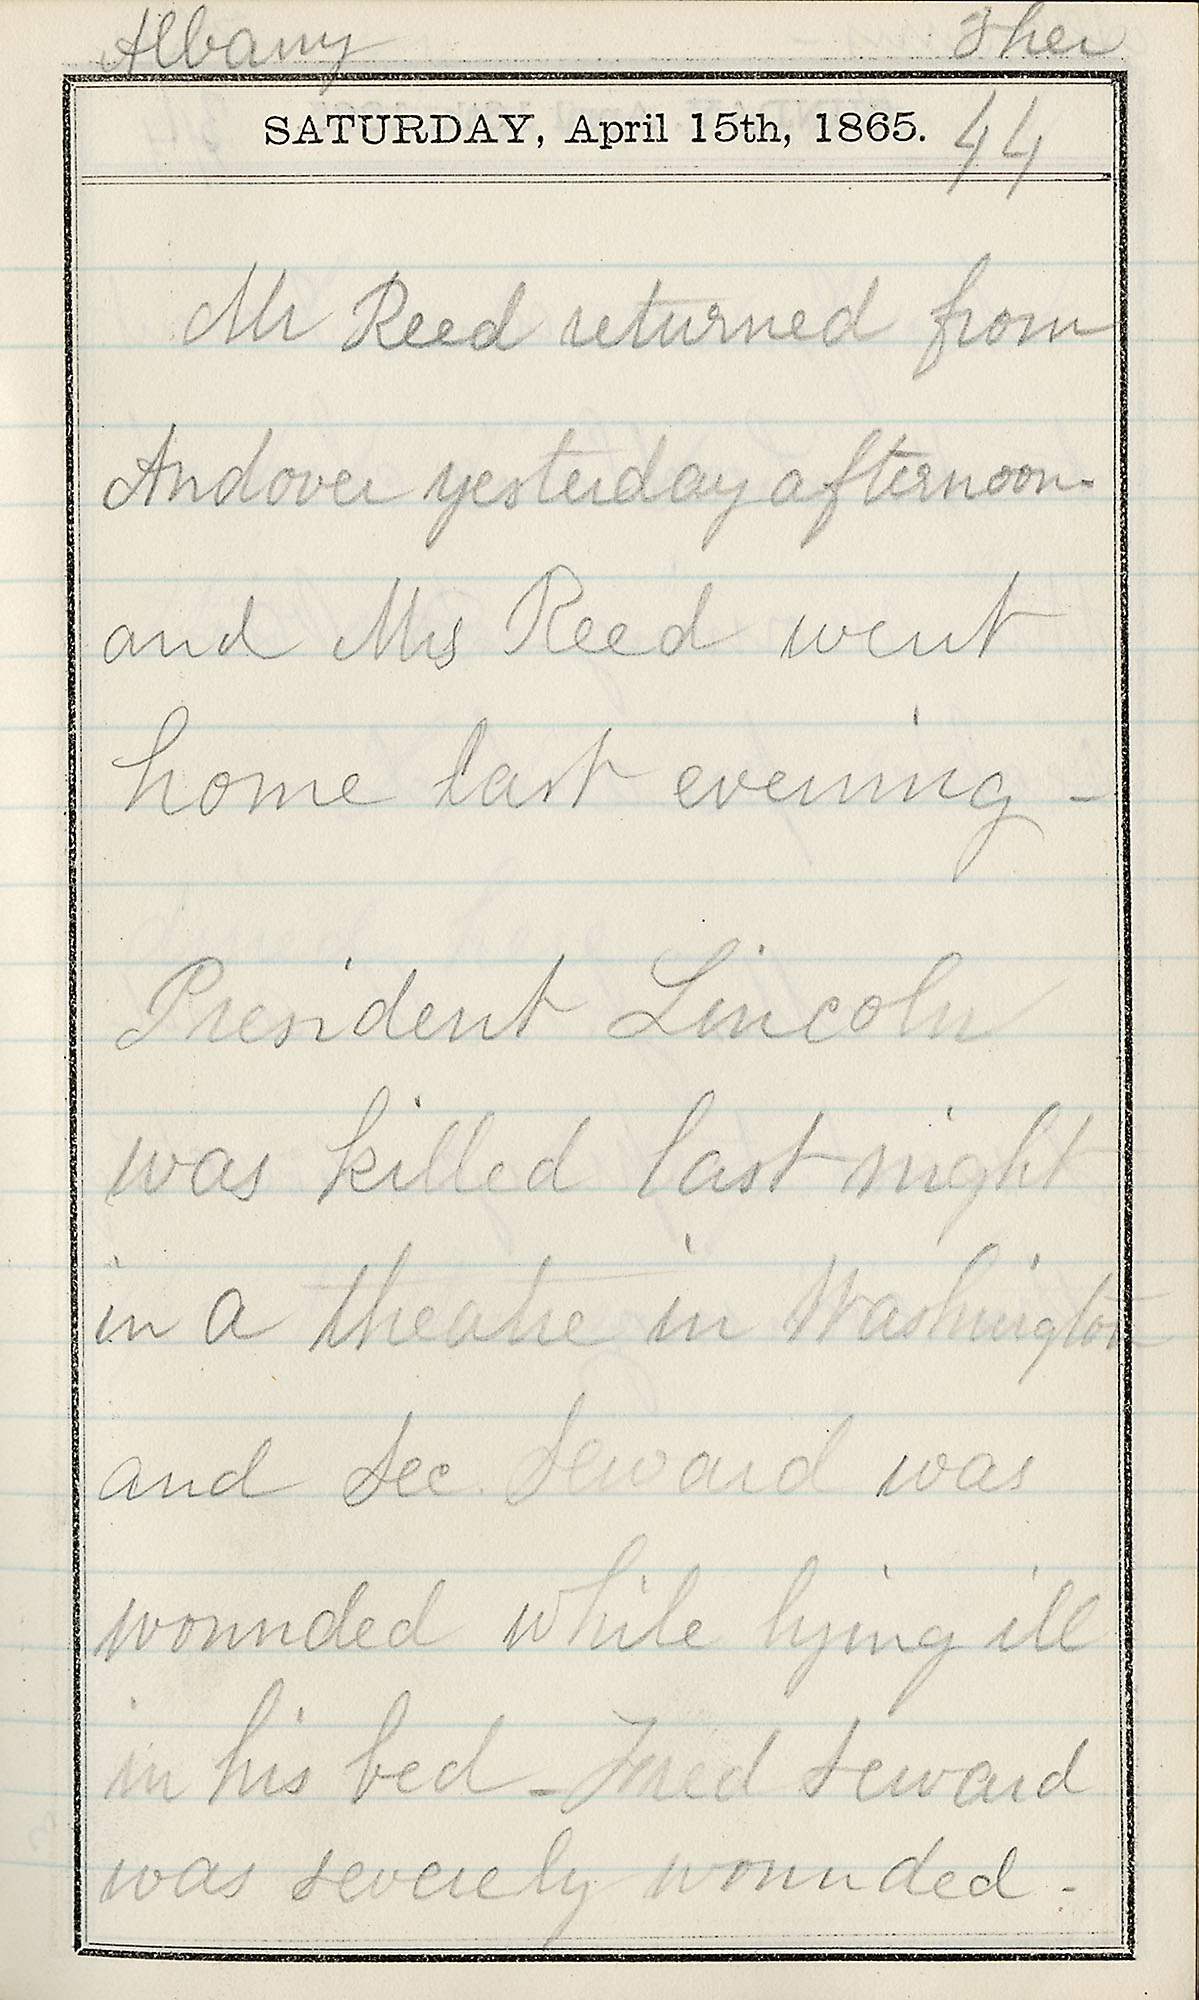 Albany Ther
SATURDAY, April 15th, 1865. 44
Mr Reed returned from
Andover yesterday afternoon.
and Mrs Reed went
home last evening -
President Lincoln
was killed last night
in a theatre in Washington
and Sec. Seward was
wounded while lying ill
in his bed - Fred Seward
was severely wounded -